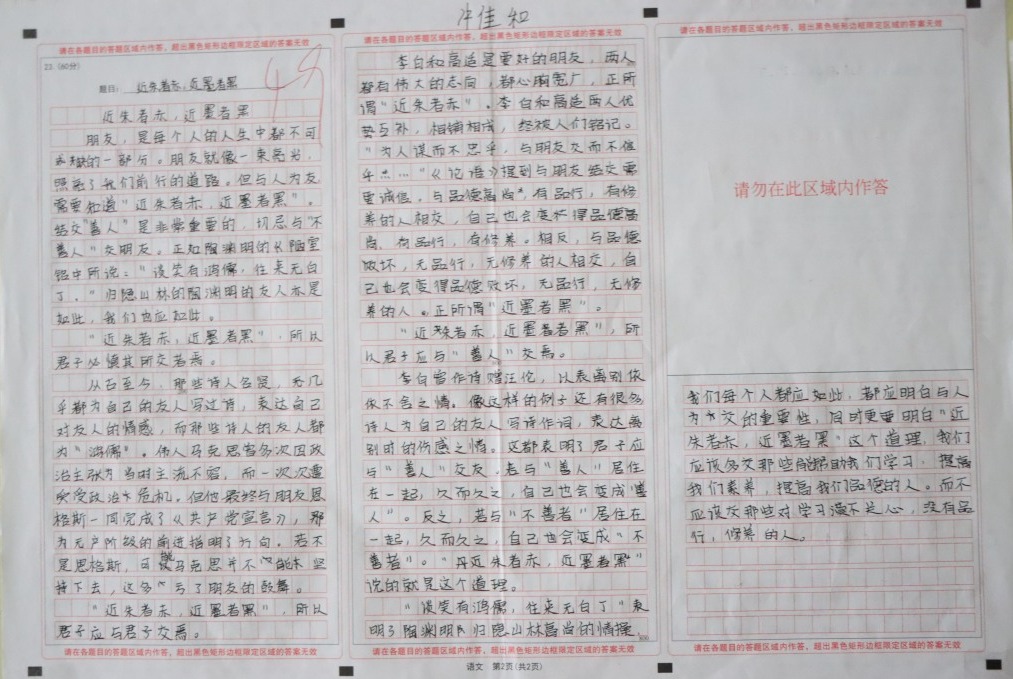 许佳和
请在各题目的答题区域内作答，超出黑色矩形边框限定区域的答案无效
23.（60分）
49
题目：近朱者赤，近墨者黑
近朱者赤，近墨者黑
朋友，是每个人的人生中都不可
或缺的一部分。朋友就像一束亮光，
照亮了我们前行的道路。但与人为友
需要知道“近朱者赤，近墨者黑”。
结交“善人”是非常重要的，切忌与“不
善人”交朋友。正如陶渊明的《陋室
铭中所说：“谈笑有鸿儒，往来无白
丁。”归隐山林的陶渊明的友人亦是
如此，我们也应如此。
“近朱者赤，近墨者黑”，所以
君子必慎其所交者焉。
从古至今，那些诗人名家，无几
乎都为自己的友人写过诗，表达自己
对友人的情感，而那些诗人的友人都
为“鸿儒”。伟人马克思曾多次因政
治主张为当时主流不容，而一次次遭
受政治危机。但他最终与朋友恩
格斯一同完成了《共产党宣言》，那
为无产阶级的前进指明了方向。若不
是恩格斯，可能马克思并不能坚
持下去，这多亏了朋友的鼓舞。
“近朱者赤，近墨者黑”，所以
君子应与君子交焉。
请在各题目的答题区域内作答，超出黑色矩形边框限定区域的答案无效
请在各题目的答题区域内作答，超出黑色矩形边框限定区域的答案无效
李白和高适是要好的朋友，两人
都有伟大的志向，都心胸宽广，正所
谓“近朱者赤”。李白和高适两人优
势互补，相辅相成，终被人们铭记。
“为人谋而不忠乎，与朋友交而不信
乎……”《论语》提到与朋友结交需
要诚信。与品德高尚，有品行，有修
养的人相交，自己也会变得品德高
尚，有品行，有修养。相反，与品德
败坏，无品行，无修养的人相交，自
己也会变得品德败坏，无品行，无修
养的人。正所谓“近墨者黑”。
“近朱者赤，近墨者黑”，所
以君子应与“善人”交焉。
李白曾作诗赠汪伦，以表离别依
依不舍之情。像这样的例子还有很多
诗人为自己的友人写诗作词，表达离
别时的伤感之情。这都表明了君子应
与“善人”交友。若与“善人”居住
在一起，久而久之，自己也会变成“善
人”。反之，若与“不善者”居住在
一起，久而久之，自己也会变成“不
善者”。“丹近朱者赤，近墨者黑”
说的就是这个道理。
“谈笑有鸿儒，往来无白丁”表
明了陶渊明归隐山林高尚的情操，
请在各题目的答题区域内作答，超出黑色矩形边框限定区域的答案无效
语文 第2页(共2页)
请在各题目的答题区域内作答，超出黑色矩形边框限定区域的答案无效
请勿在此区域内作答
我们每个人都应如此，都应明白与人
为交的重要性，同时更要明白“近
朱者赤，近墨者黑”这个道理。我们
应该多交那些能帮助我们学习，提高
我们素养，提高我们品德的人。而不
应该交那些对学习漫不关心，没有品
行，修养的人。
请在各题目的答题区域内作答，超出黑色矩形边框限定区域的答案无效